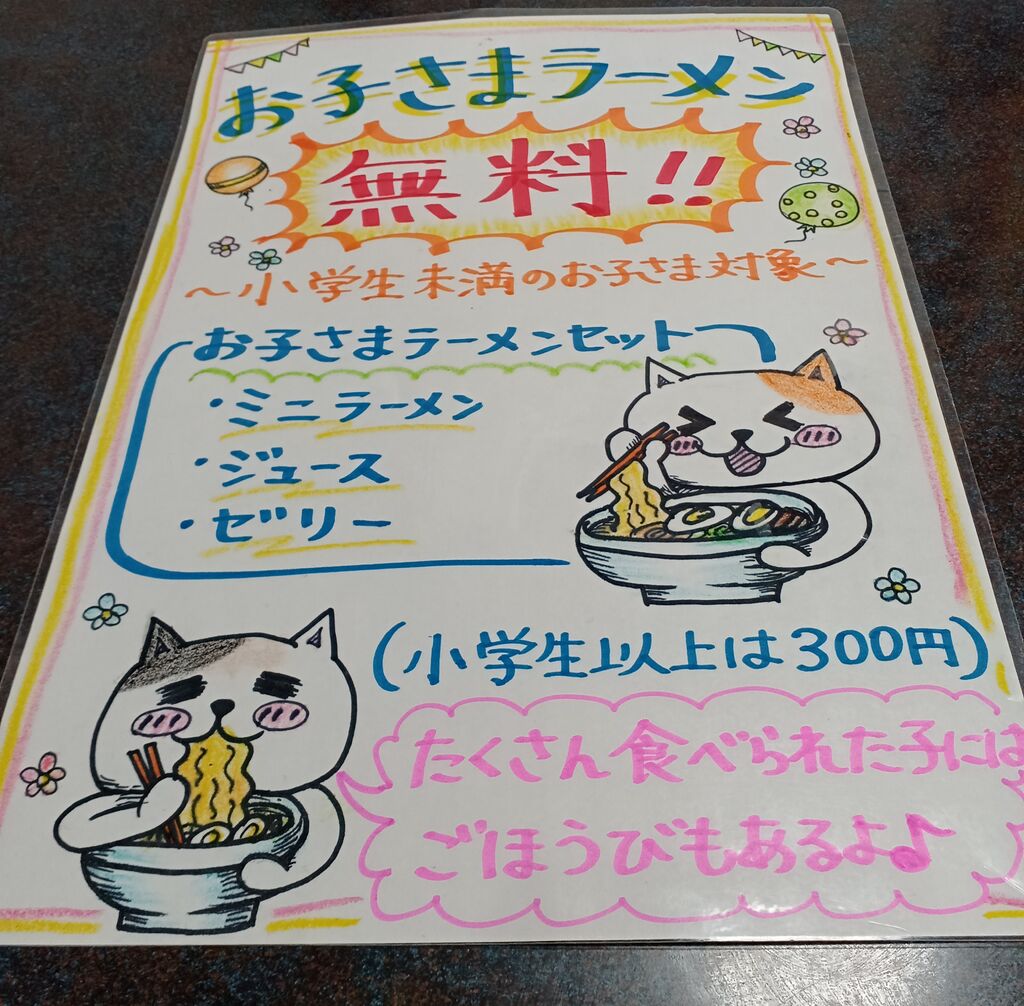 お子さまラーメン
無料!!
～小学生未満のお子さま対象～
お子さまラーメンセット
・ミニラーメン
・ジュース
・ゼリー
(小学生以上は300円)
たくさん食べられた子には
ごほうびもあるよ♪